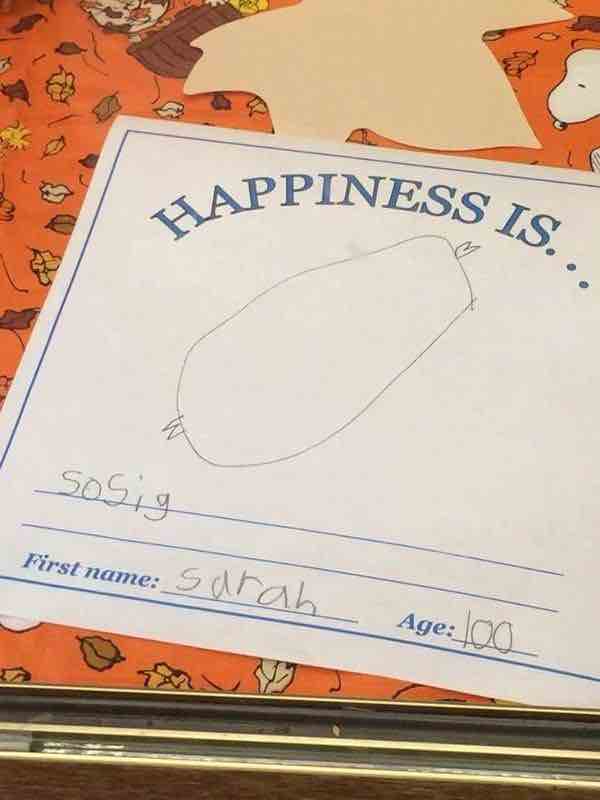 HAPPINESS IS...
sosig
First name: sarah Age: 100